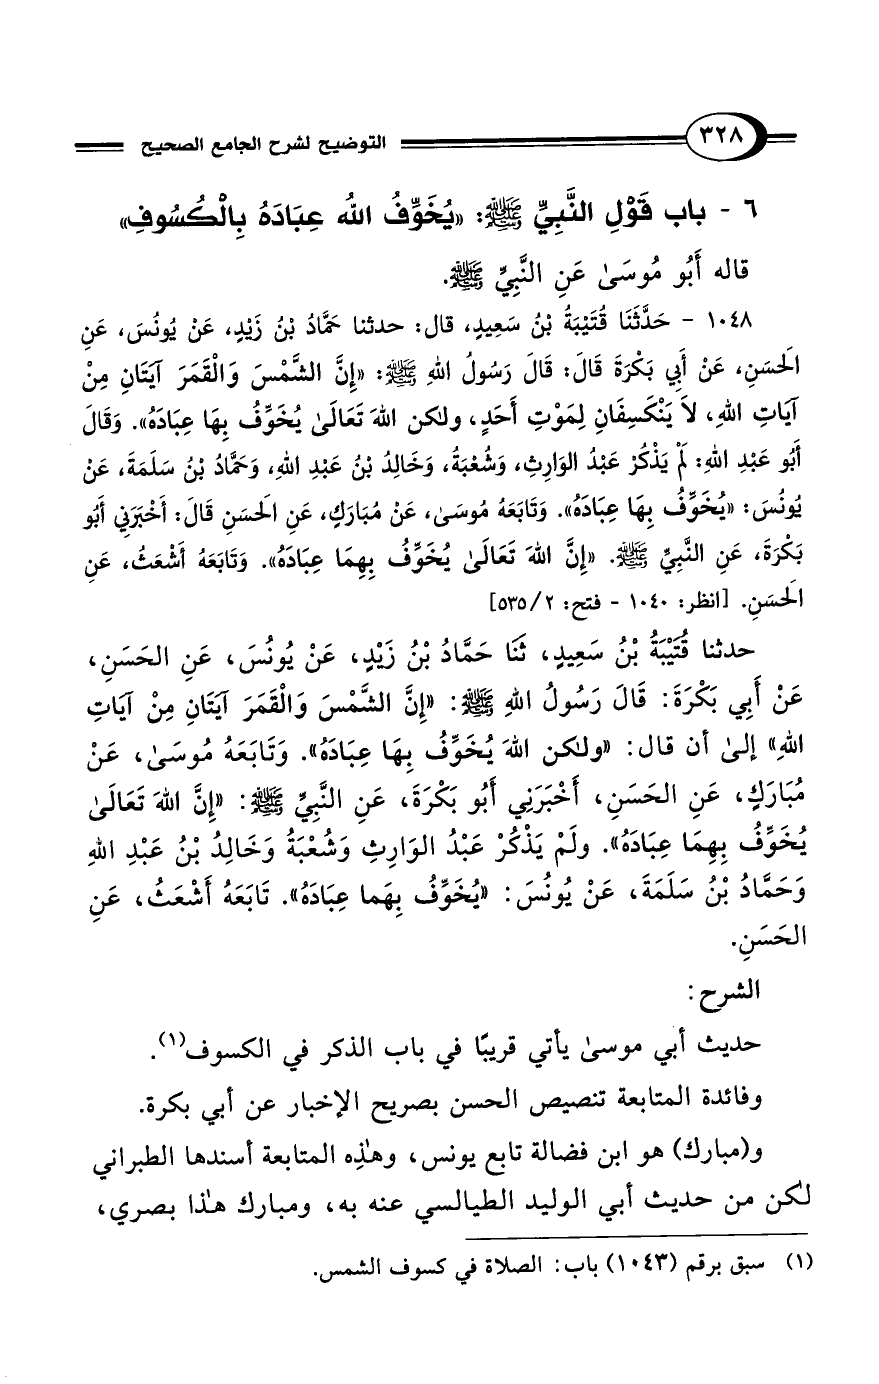 ٣٢٨ التوضيح لشرح الجامع الصحيح
٦ - باب قَوْلِ النَّبِيِّ ﷺ: «يُخَوِّفُ اللهُ عِبَادَهُ بِالْكُسُوفِ»
قاله أَبُو مُوسَىٰ عَنِ النَّبِيِّ ﷺ.
١٠٤٨ - حَدَّثَنَا قُتَيْبَةُ بْنُ سَعِيدٍ، قال: حدثنا حَمَّادُ بْنُ زَيْدٍ، عَنْ يُونُسَ، عَنِ
الَحسَنِ، عَنْ أَبِي بَكْرَةَ قَالَ: قَالَ رَسُولُ اللهِ ﷺ: «إِنَّ الشَّمْسَ وَالْقَمَرَ آيَتَانِ مِنْ
آيَاتِ اللهِ، لاَ يَنْكَسِفَانِ لِمَوْتِ أَحَدٍ، ولكن اللهَ تَعَالَىٰ يُخَوِّفُ بِهَا عِبَادَهُ». وَقَالَ
أَبُو عَبْدِ اللهِ: لَمْ يَذْكُرْ عَبْدُ الوَارِثِ، وَشُعْبَةُ، وَخَالِدُ بْنُ عَبْدِ اللهِ، وَحَمَّادُ بْنُ سَلَمَةَ، عَنْ
يُونُسَ: «يُخَوِّفُ بِهَا عِبَادَهُ». وَتَابَعَهُ مُوسَىٰ، عَنْ مُبَارَكٍ، عَنِ الَحسَنِ قَالَ: أَخْبَرَنِي أَبُو
بَكْرَةَ، عَنِ النَّبِيِّ ﷺ. «إِنَّ اللهَ تَعَالَىٰ يُخَوِّفُ بِهِمَا عِبَادَهُ». وَتَابَعَهُ أَشْعَثُ، عَنِ
الَحسَنِ. [انظر: ١٠٤٠ - فتح: ٢/ ٥٣٥]
حدثنا قُتَيْبَةُ بْنُ سَعِيدٍ، ثَنَا حَمَّادُ بْنُ زَيْدٍ، عَنْ يُونُسَ، عَنِ الحَسَنِ،
عَنْ أَبِي بَكْرَةَ: قَالَ رَسُولُ اللهِ ﷺ: «إِنَّ الشَّمْسَ وَالْقَمَرَ آيَتَانِ مِنْ آيَاتِ
اللهِ» إلىٰ أن قال: «ولكن اللهَ يُخَوِّفُ بِهَا عِبَادَهُ». وَتَابَعَهُ مُوسَىٰ، عَنْ
مُبَارَكٍ، عَنِ الحَسَنِ، أَخْبَرَنِي أَبُو بَكْرَةَ، عَنِ النَّبِيِّ ﷺ: «إِنَّ اللهَ تَعَالَىٰ
يُخَوِّفُ بِهِمَا عِبَادَهُ». ولَمْ يَذْكُرْ عَبْدُ الوَارِثِ وَشُعْبَةُ وَخَالِدُ بْنُ عَبْدِ اللهِ
وَحَمَّادُ بْنُ سَلَمَةَ، عَنْ يُونُسَ: «يُخَوِّفُ بِهَما عِبَادَهُ». تَابَعَهُ أَشْعَثُ، عَنِ
الحَسَنِ.
الشرح:
حديث أبي موسىٰ يأتي قريبًا في باب الذكر في الكسوف(١).
وفائدة المتابعة تنصيص الحسن بصريح الإخبار عن أبي بكرة.
و(مبارك) هو ابن فضالة تابع يونس، وهٰذِه المتابعة أسندها الطبراني
لكن من حديث أبي الوليد الطيالسي عنه به، ومبارك هٰذا بصري،
(١) سبق برقم (١٠٤٣) باب: الصلاة في كسوف الشمس.